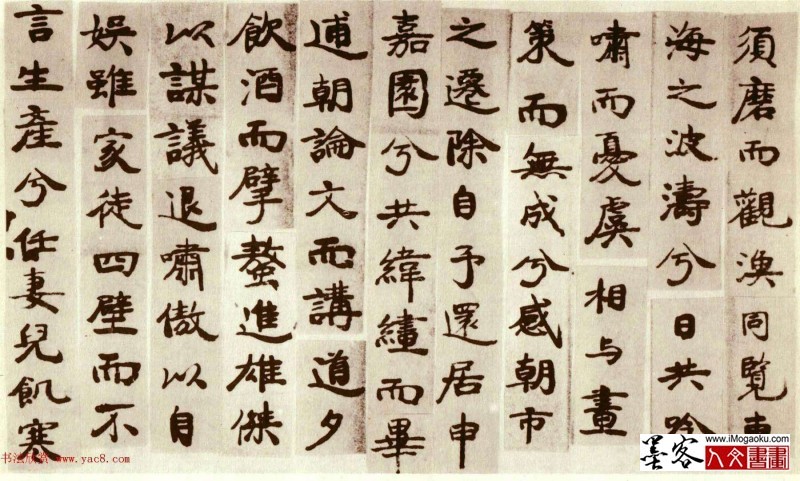 須磨而觀漁同覽東
海之波濤兮日共吟
嘯而憂虞相与畫
策而無成兮感朝市
之遷除自予還居申
嘉園兮共緯繣而畢
逋朝論文而講道夕
飲酒而擘螯進雄傑
以謀議退嘯傲以自
娱雖家徒四壁而不
言生產兮任妻兒飢寒
书法欣赏 www.yac8.com
www.iMogaoku.com
墨客
人文書畫